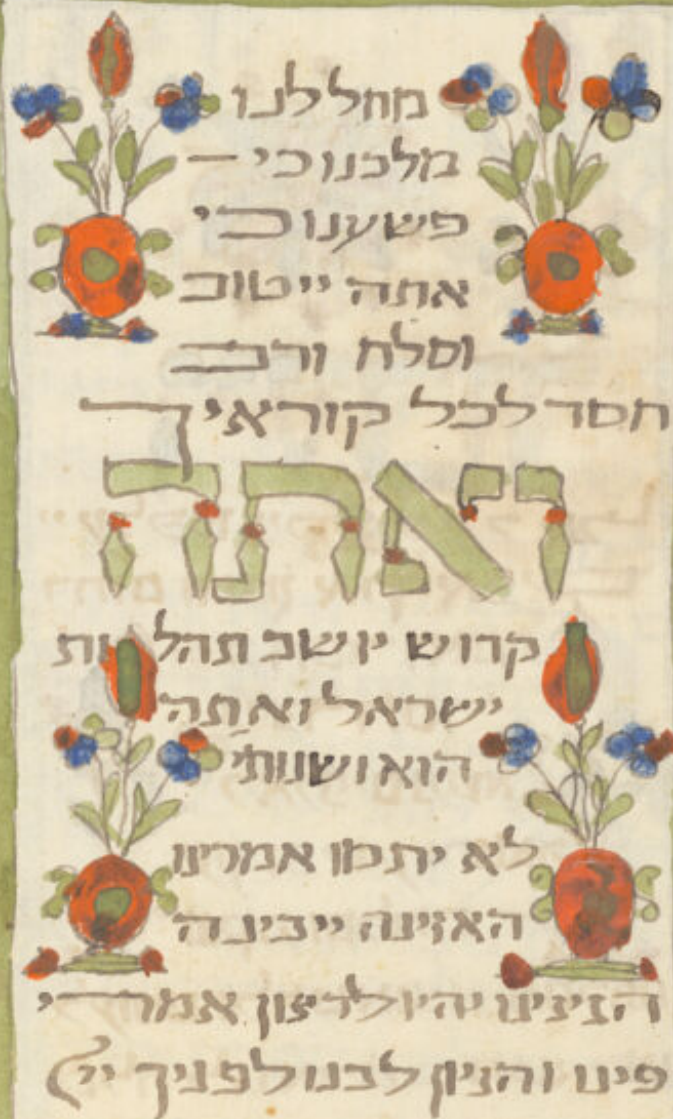 מחל לנו
מלכנו כי —
פשענו כי
אתה ייטוב
וסלח ורב
חסד לכל קוראיך
ואתה
קדוש יושב תהלות
ישראל ואתה
הוא ושנותי'
לא יתמו אמרינו
האזינה ייבינה
הגיגינו יהיו לרצון אמרי
פינו והגיון לבנו לפניך יי